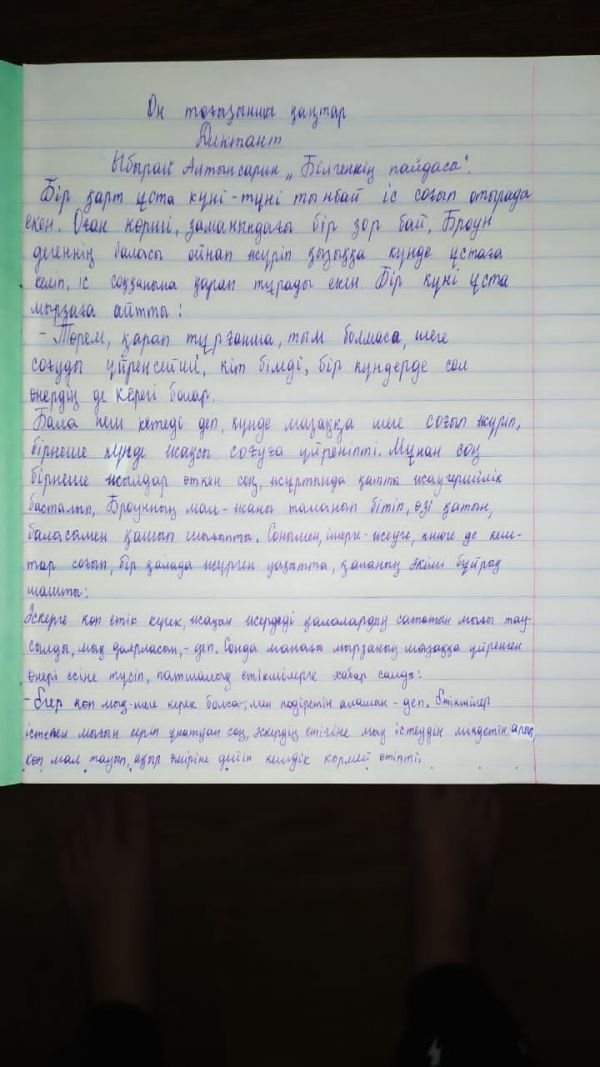 Он тоғызыншы қаңтар
Диктант
Ыбырай Алтынсарин „Білгеннің пайдаса".
Бір қарт ұста күні-түні тынбай іс соғып отырада
екен. Оған көрші, заманындағы бір зор бай, Броун
дегеннің баласы ойнап жүріп қызыққа күнде ұстаға
келіп, іс соққанына қарап тұрады екен. Бір күні ұста
мырзаға айтты:
- Төрем, қарап тұрғанша, тым болмаса, шеге
соғуды үйренсейші, кіт білмді, бір күндерде сол
өнердің де керегі болар.
Бала неш кетеді деп, күнде мазаққа шеге соғып жүріп,
бірнеше күнде жақсы соғуға үйреніпті. Мұнан соң
бірнеше жылдар өткен соң, жұртында қатты жаугершілік
басталып, Броунның мал-жаны таланып бітіп, өзі қатын,
баласымен қашып шығыпты. Сонымен, ішерге-жеуге, киюге де кем-
тар соғып, бір қалада жүрген уақытта, қаланың әкімі бұйрық
шашты:
Әскерге көп етік керек, жақын жердегі қалалардың сататын мығы тау-
сылды, мық даярласын, - деп. Сонда манағы мырзаның мазаққа үйренген
өнері есіне түсіп, патшалық етікшілерге хабар салды:
- Егер көп мық-шеге керек болса, мен подрәтін аламын - деп. Етікшілер
істеген мығын көріп ұнатқан соң, әскердің етігіне мық істеудің міндетін алып,
көп мал тауып, ақыр өміріне дейін кемдік көрмей өтіпті.